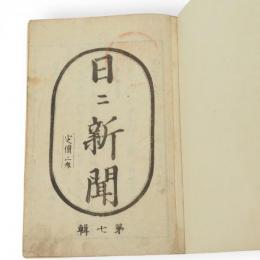 日二新聞
定價二匁
第七輯